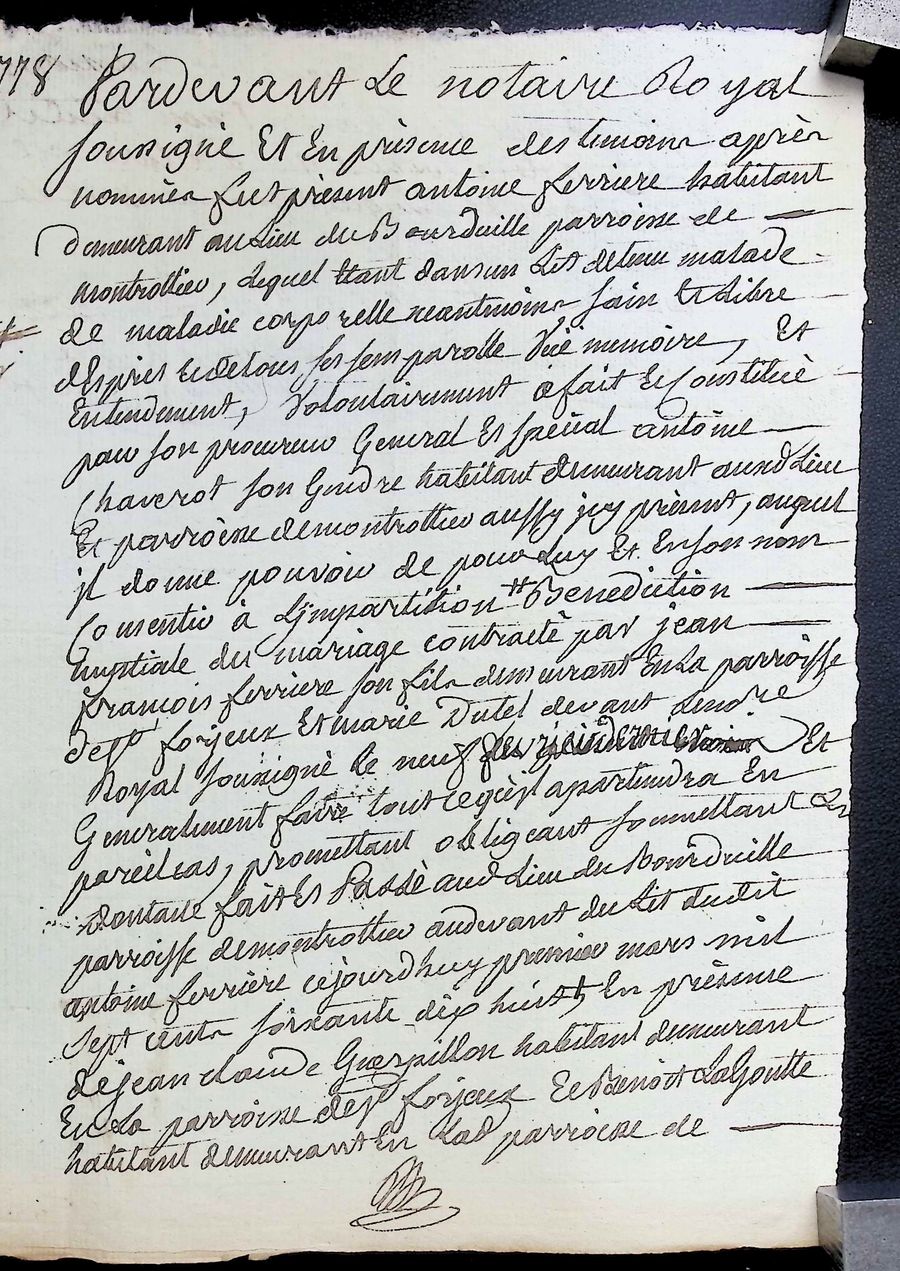 1778
Pardevant Le notaire Royal
soussigné Et En présence des temoins après
nommés fut présent antoine ferriere habitant
demeurant au Lieu du Bourdeille parroisse de
montrottier, Lequel Etant dans un Lit detenu malade
de maladie corporelle neantmoins sain Et Libre
desprit Et de tous ses sens parolle Vüe memoire, Et
Entendement, Volontairement a fait Et Constitué
pour son procureur General Et spécial antoine
Chaverot son Gendre habitant demeurant aud Lieu
Et parroisse de montrottier aussy jcy présent, auquel
jl donne pouvoir de pour Luy Et En son nom
Consentir à L'jmpartition tt Benediction
nuptiale du mariage contracté par jean
françois ferriere son fils demeurant En La parroisse
de st forjeux Et marie Dutel devant Le no.re
Royal soussigné le neuf fevrier dernier Et
Generalement faire tout ce qu'jl apartiendra En
pareil cas, promettant obligeant soumettant &a
Dontacte fait Et Passé aud Lieu du Bourdeille
parroisse de montrottier audevant du Lit dudit
antoine ferrière cejourdhuy premier mars mil
sept cents soixante dix huit, En présence
de jean claude Guerpillon habitant demeurant
En La parroisse de st forjeux Et Benoit La Goutte
habitant demeurant En Lad parroisse de